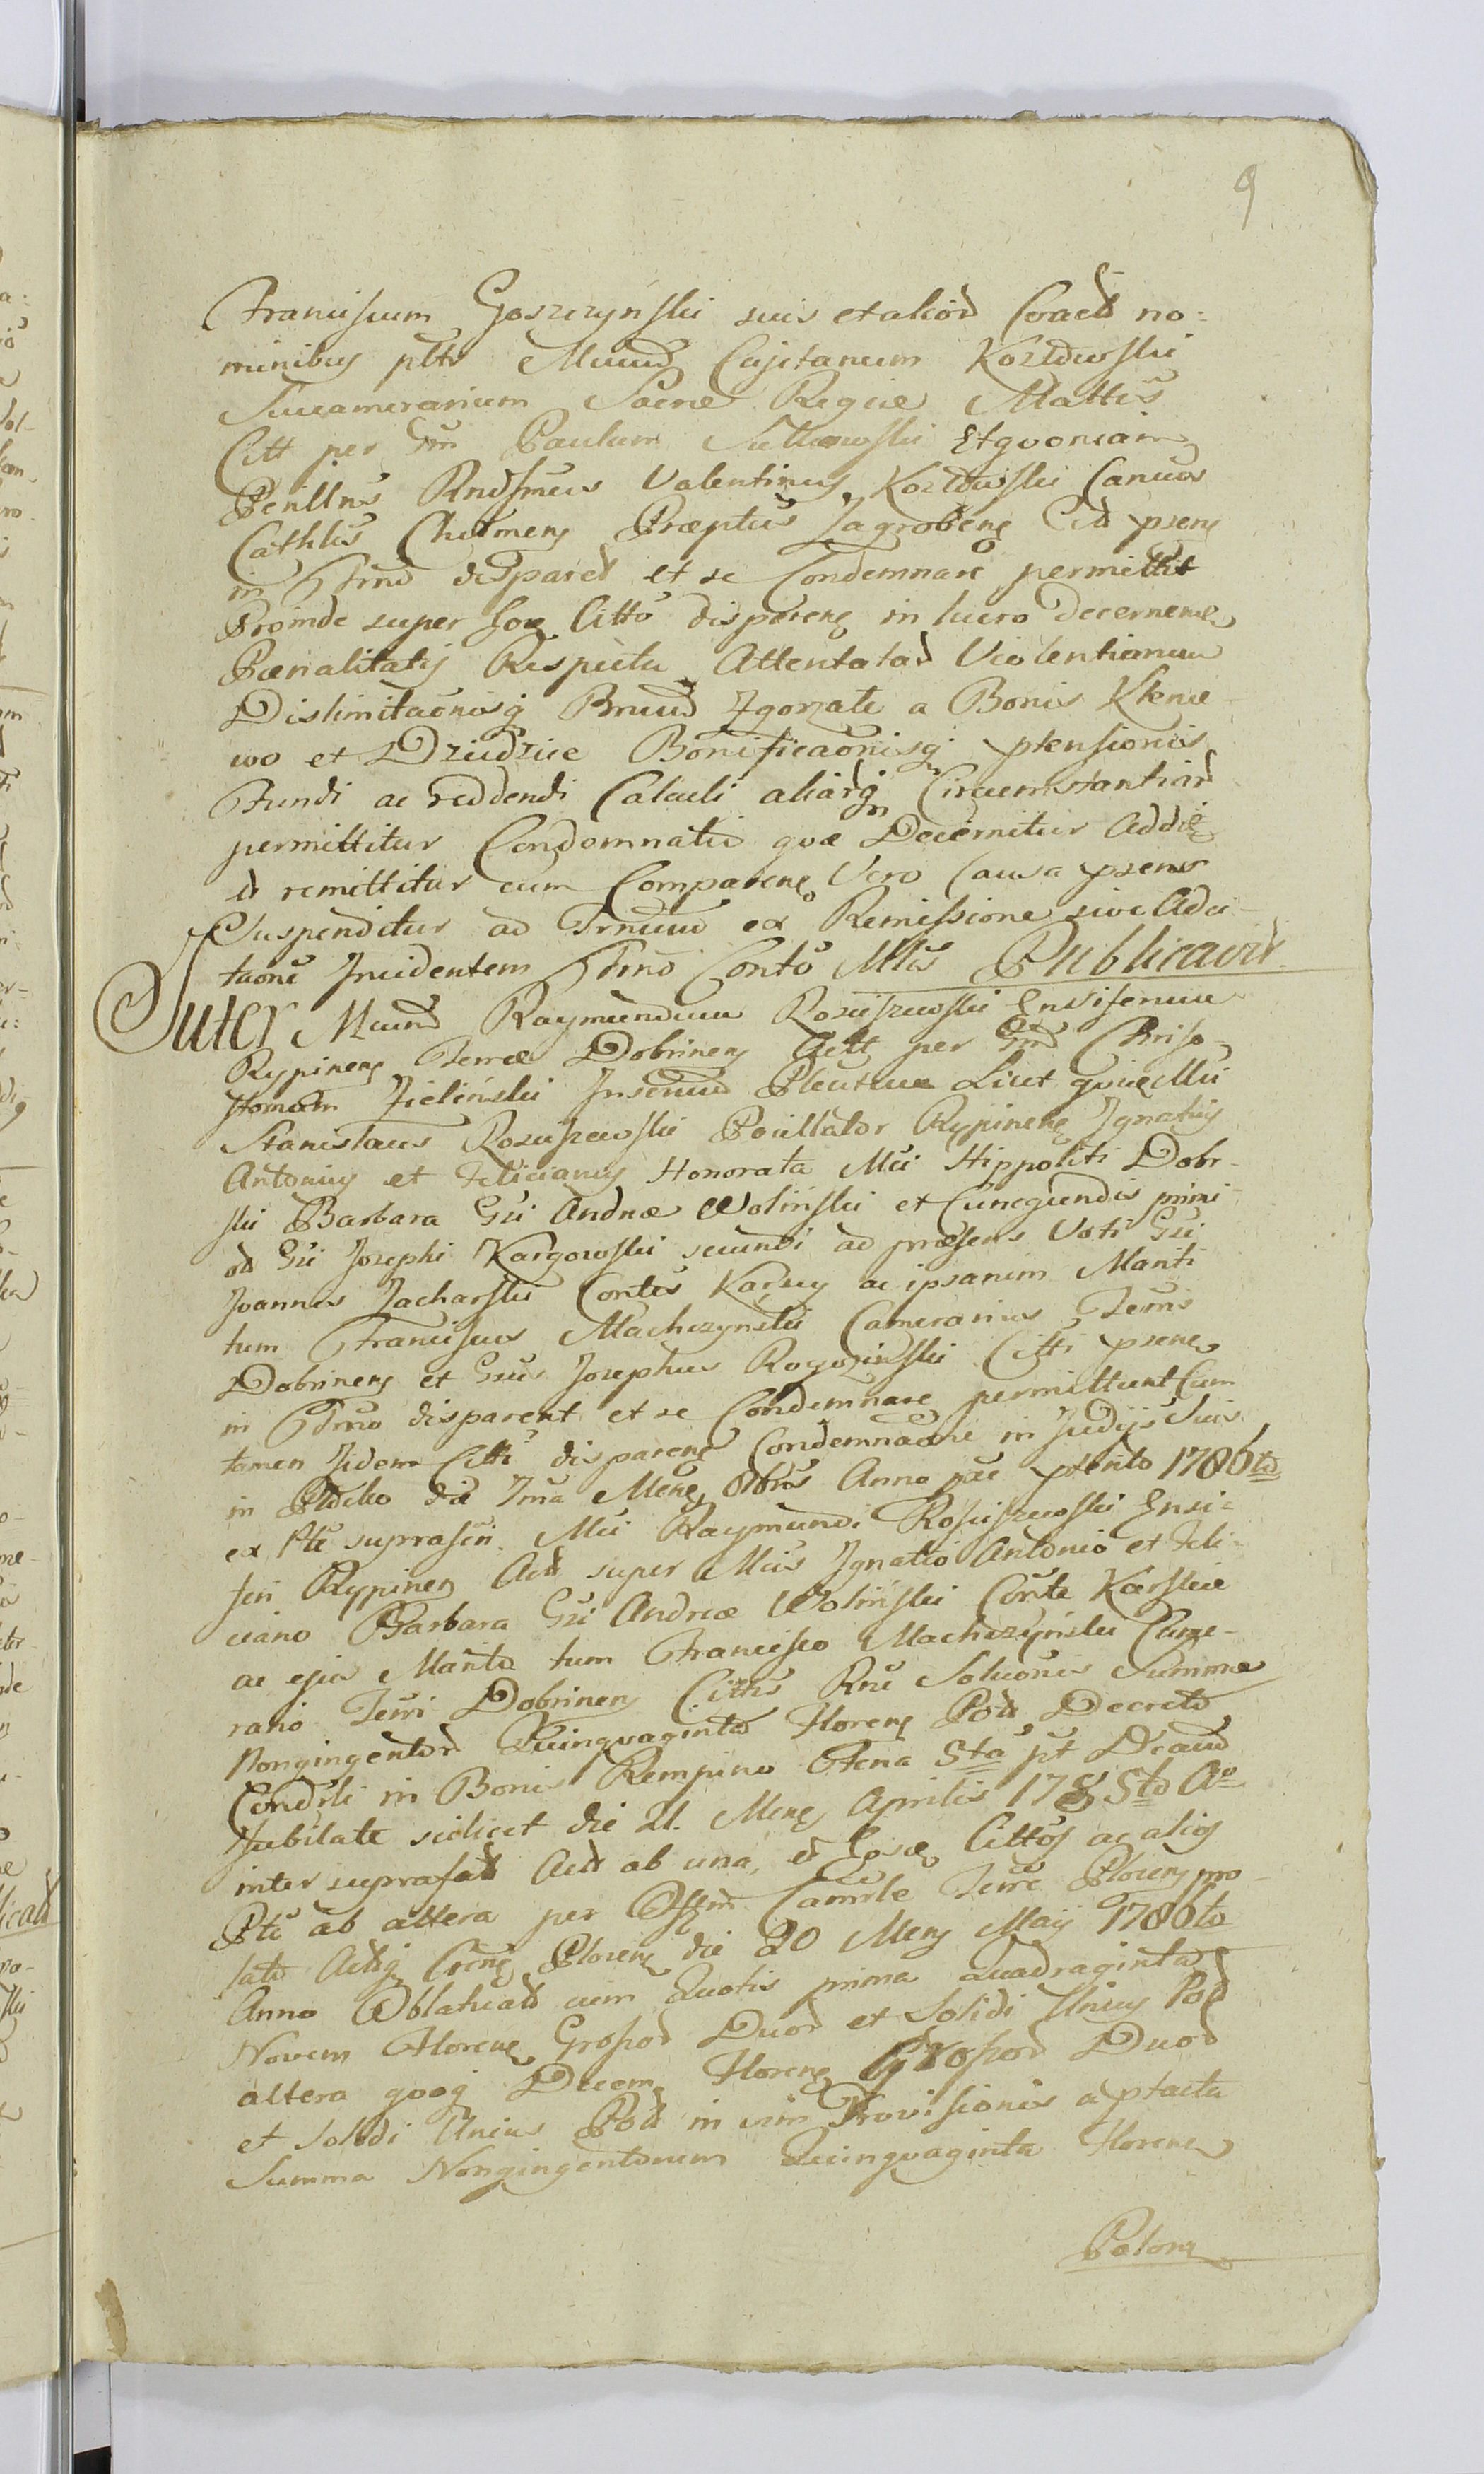 9
Franciscum Goszczyński suis et aliор Coact no=
minibus pltr Mcum Cajetanum Kozłowski
Succamerarium Sacræ Regiæ Mattis
Citt per Gm Paulum Sulkowski Et quoniam
Penllns Rndsmus Valentinus Kozłowski Canus
Cathlis Chelmens Præptus Zagrobens Citt psens
in Trno disparet et se Condemnare permittit
Proinde super hoc Citto disparens in lucro decernens
Pœnalitatis Respectu Attentatar Violentiarum
Dislimitaonisq Bnrum Zgorzałe a Bonis Klenie-
wo et Dziedzice Bonificaonisq ptensionis
Fundi ac reddendi Calculi aliarq Circumstantiar
permittitur Condemnatio quæ Decernitur Addie
et remittitur cum Comparens Vero Causa psens
Suspenditur ad Trnum ex Remissione sive Adci-
taone Incidentem Trno Conto Mtis Publicavit
Inter Mcum Raymundum Rościszewski Ensiferum
Rypinens Terræ Dobrinens Actt per Gm Chriso-
stomum Zieliński Juratum Plentum Licet quia Mci
Stanislaus Rościszewski Pocillator Rypinens Ignatius
Antonius et Felicianus Honorata Mci Hippoliti Dobr-
ski Barbara Gsi Andreæ Woliński et Cunegundis primi
od Gsi Josephi Kargowski secundi ad præsens Voti Gsi
Joannis Zacharski Contes Karxes ac ipsarum Mariti
tum Franciscus Machczyński Camerarius Terris
Dobrinens et Gsus Josephus Rogoziński Citti psens
in Trno disparent et se Condemnare permittunt Cum
tamen Iidem Citti disparens Condemnaone in Judiis suis
in Plocko die 7ma Mens 8bris Anno pæ ptento 1786to
ex Pte suprascri Mci Raymundi Rościszewski Ensi-
feri Rypinens Actt super Mcis Ignatio Antonio et Feli-
ciano Barbara Gsi Andreæ Woliński Conte Karskie
ac ejus Marito tum Francisco Machczyński Came-
rario Terri Dobrinens Cittis Rne Solutionis Summæ
Nongingentor Quinquaginta Florens Poll Decreto
Condsli in Bonis Rempino Feria 5ta pt Dcam
Jubilate scilicet die 21. Mens Aprilis 1785to Ao
inter suprafat Actt ab una, et Eosdem Cittos ac alios
Pte ab altera per Offm Camrle Terræ Plocens pro-
lato Actisq Crens Plocens die 20 Mens Maij 1786to
Anno Oblatuatt cum Quotis prima Quadraginta
Novem Florens Grossor Duor et Solidi Unius Poll
altera quoq Decem Florens Grossor Duor
et Solidi Unius Poll in vim Provisionis a ptacta
Summa Nongingentorum Quinquaginta Florens
Polon